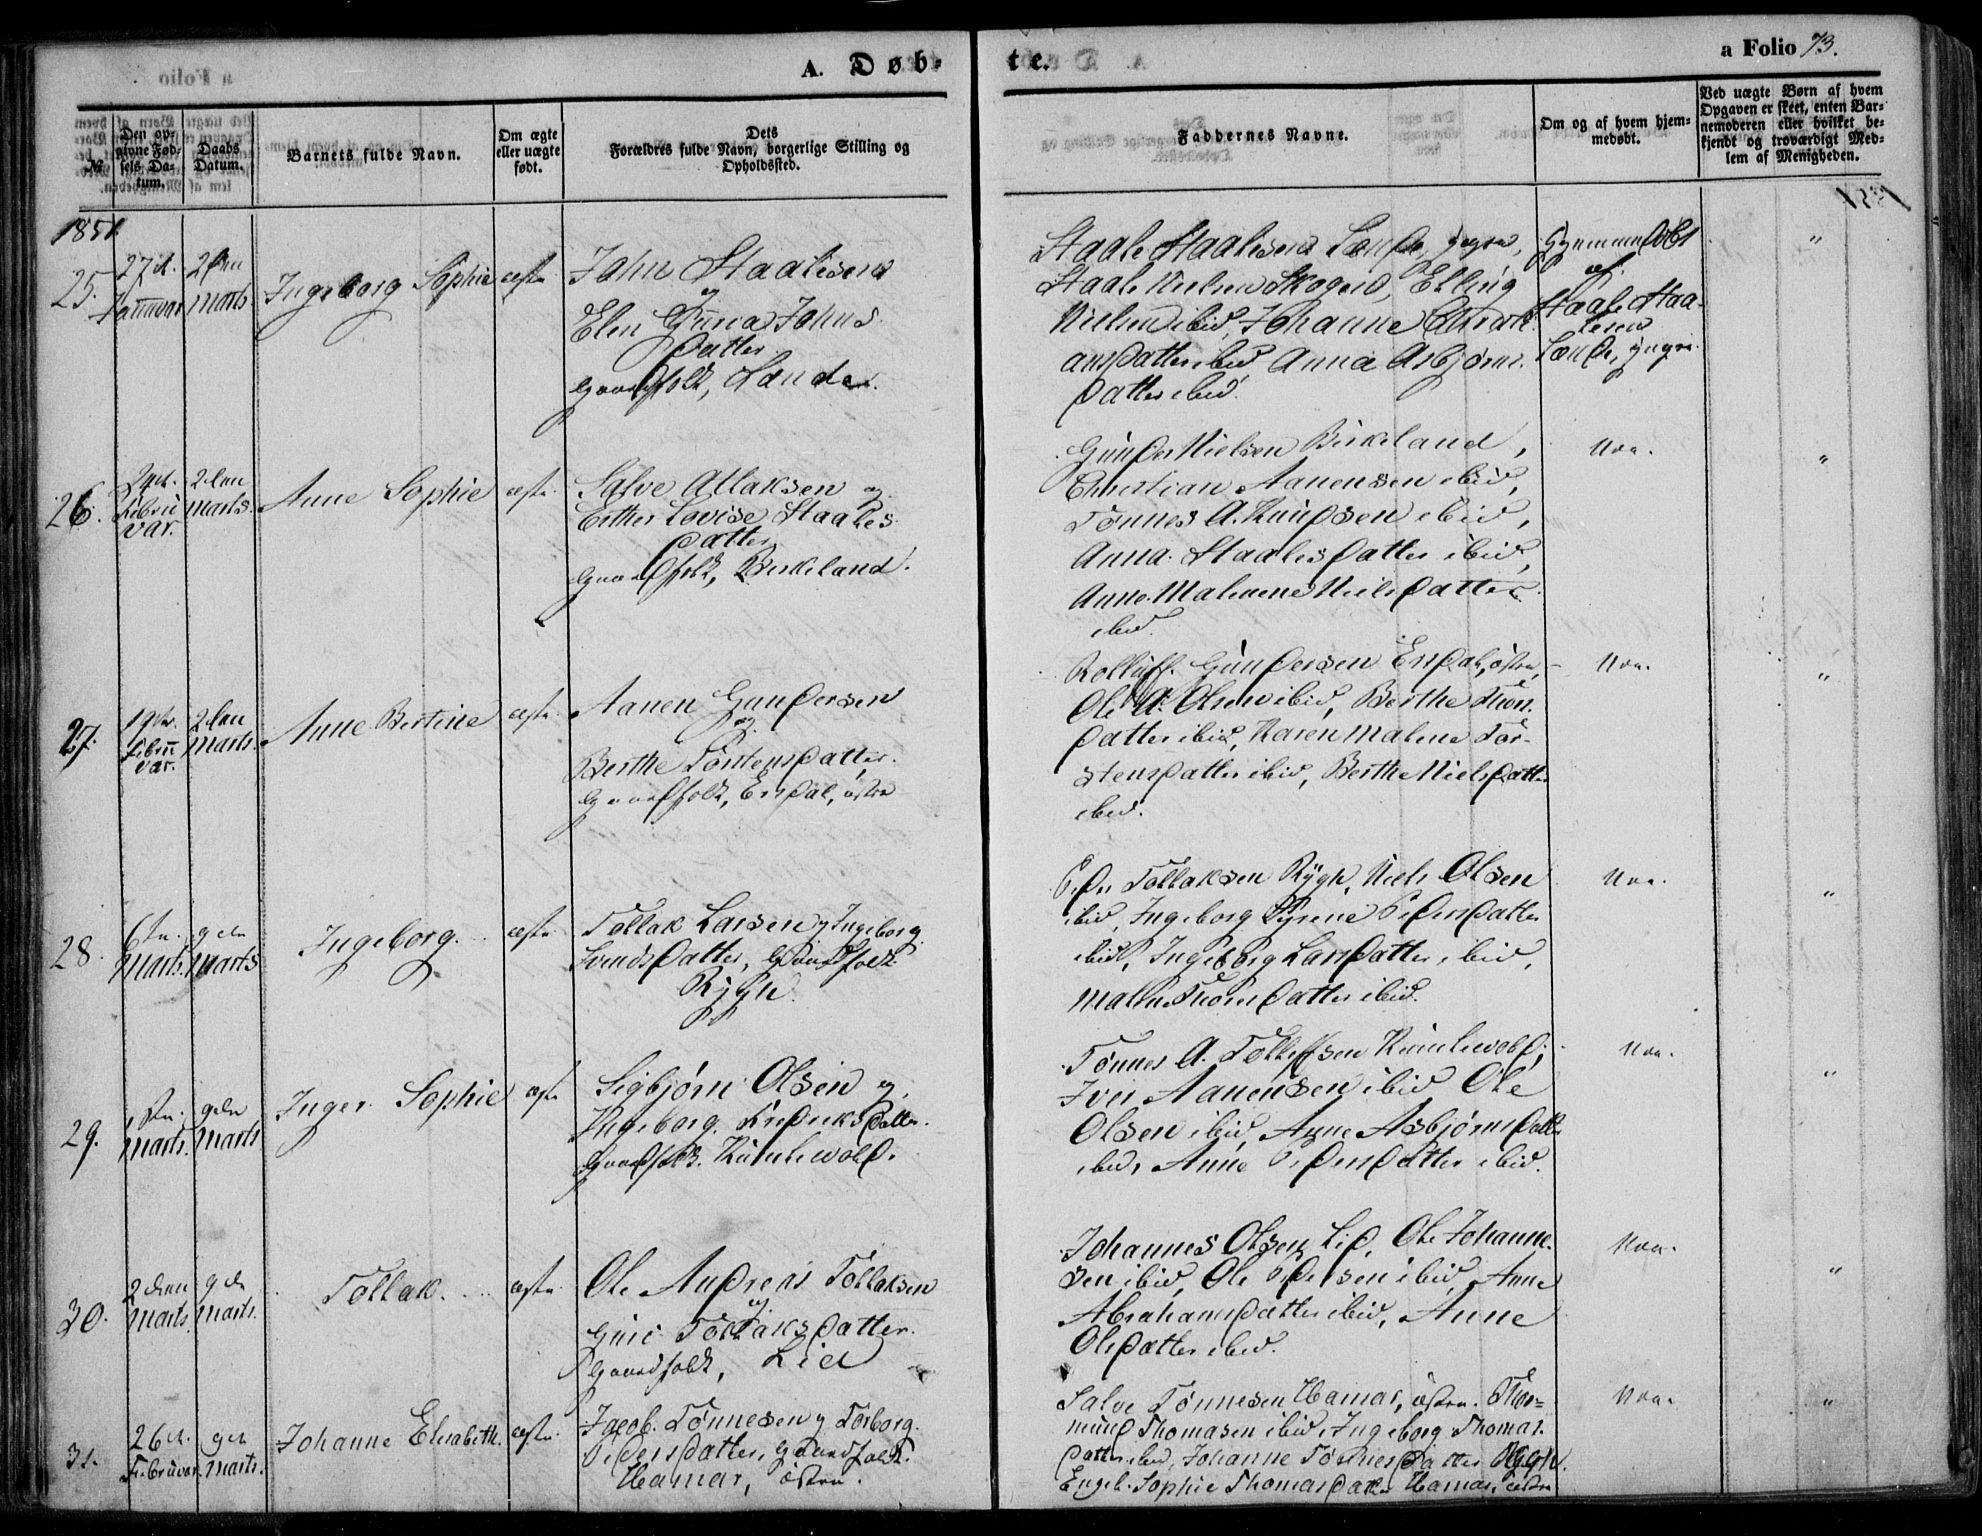 A. Døb-
te.
a Folio 73.
№
Den op-
givne Fød-
sels Da-
tum.
Daabs
Datum.
Barnets fulde Navn.
Om ægte
eller uægte
født.
Dets
Forældres fulde Navn, borgerlige Stilling og
Opholdssted.
Faddernes Navne.
Om og af hvem hjem-
medøbt.
Ved uægte Børn af hvem
Opgaven er skeet, enten Bar-
nemoderen eller hvilket be-
kjendt og troværdigt Med-
lem af Menigheden.
1851
25.
27d.
Januar
2den
Marts
Ingeborg Sophie
ægte
John Staalesen
og
Elen Guria Johns
datter
Gaardfolk, Lande
Staale Staalesen Lande, yngre,
Staale Nielsen Skogen, Elling
Nielsen ibid, Johanne
datter ibid Anna Asbjørns
datter ibid.
Hjemmedøbt
af
Staale Staa-
lesen
Lande, yngre.
"
26.
Februe
var.
2den
Marts.
Anne Sophie
ægte
Salve Atlaksen og
Esther Lovise Staales
datter
Gaardfolk, Birkeland.
Gunder Nielsen Birkeland,
Christian Aanensen ibid,
Tønnes A. Knudsen ibid,
Anna Staalesdatter ibid,
Anne Malene Nielsdatter
ibid.
Nei.
"
27.
19de
Febru
var.
2den
Marts.
Anne Bertine
ægte
Aanen Gundersen
og
Berthe Torstensdatter
Gaardfolk, Ersdal, østre
Rolluff Gundersen Ersdal, østre,
Ole A. Olsen ibid, Berthe
datter ibid, Karen Malene Tor-
stensdatter ibid, Berthe Nielsdatter
ibid.
Nei.
"
28.
6te
Marts.
9de
Marts
Ingeborg.
ægte
Tollak Larsen og Ingeborg
Svendsdatter, Gaardfolk
Rygh.
Peder Tollaksen Rygh, Niels Olsen
ibid, Ingeborg Pedersdatter
ibid, Ingeborg Larsdatter ibid,
Malene datter ibid.
Nei.
"
29.
Marts.
9de
Marts
Inger Sophie
ægte
Sigbjørn Olsen og
Ingeborg Frederiksdatter.
Gaardfolk.
Tønnes A. Tollefsen
Iver Aanensen ibid Ole
Olsen ibid, Anne Asbjørnsdatter
ibid, Anne Pedersdatter ibid.
Nei.
"
30.
2den
Marts.
9de
Marts.
Tollak.
ægte
Ole Andreas Tollaksen
og
Guri Tollaksdatter.
Gaardfolk, Lid
Johannes Olsen Lid, Ole Johanne-
sen ibid, Ole Pedersen ibid, Anne
Abrahamsdatter ibid, Anne
Olsdatter ibid.
Nei.
"
31.
26de
Februar.
9de
Marts.
Johanne Elisabeth.
ægte
Jacob Tønnesen og Torborg
Pedersdatter, Gaardfolk
Hamar, østre.
Salve Tønnesen Hamar, østre. Thor-
mund Thomasen ibid, Ingeborg Thomas
datter ibid, Johanne Tønnesdatter Rygh.
Engel Sophie Thomasdatter Hamar, østre
Nei.
"